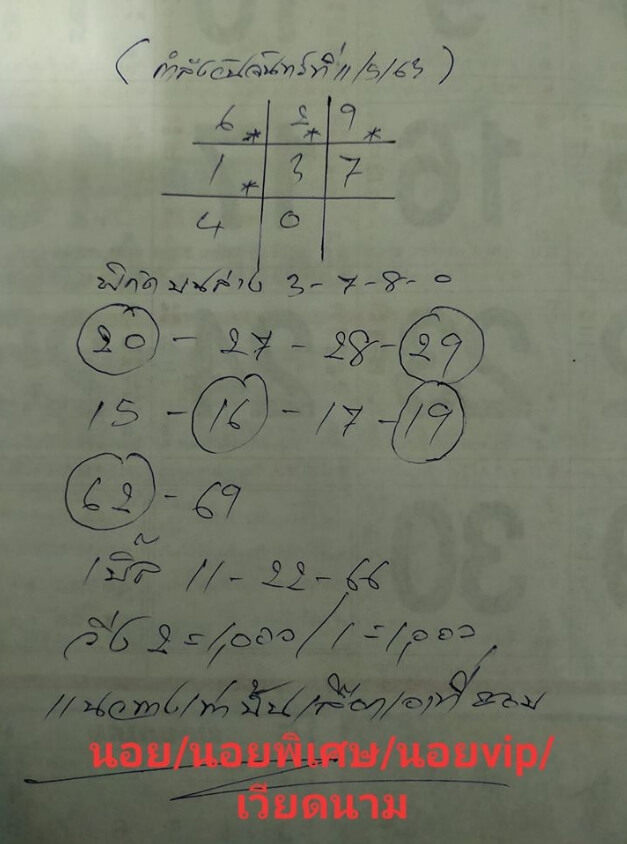 (กำลังวันจันทร์ที่ 11/5/63)
6* 2* 9*
1* 3 7
4 0
พิกัด บนล่าง 3-7-8-0
20 - 27 - 28 - 29
15 - 16 - 17 - 19
62 - 69
เบิ้ล 11 - 22 - 66
วิ่ง 2 = 1,000 / 1 = 1,000
แนวทางเท่านั้น เลือกเอาที่ชอบ
นอย/นอยพิเศษ/นอยvip/
เวียดนาม
16
30